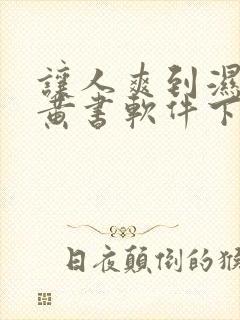 讓人爽到濕
黃書軟件下
日夜顛倒的猴